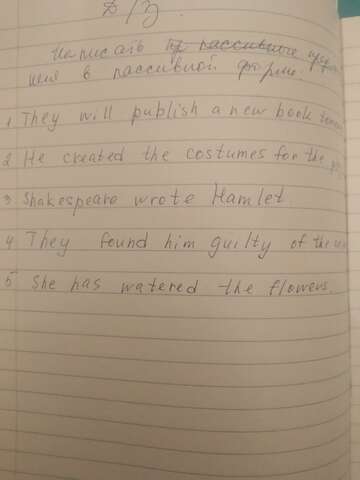 Д/З.
Написать предло
ния в пассивной форме.
1 They will publish a new book
2 He created the costumes for the
3 Shakespeare wrote Hamlet.
4 They found him guilty of the
5 She has watered the flowers.